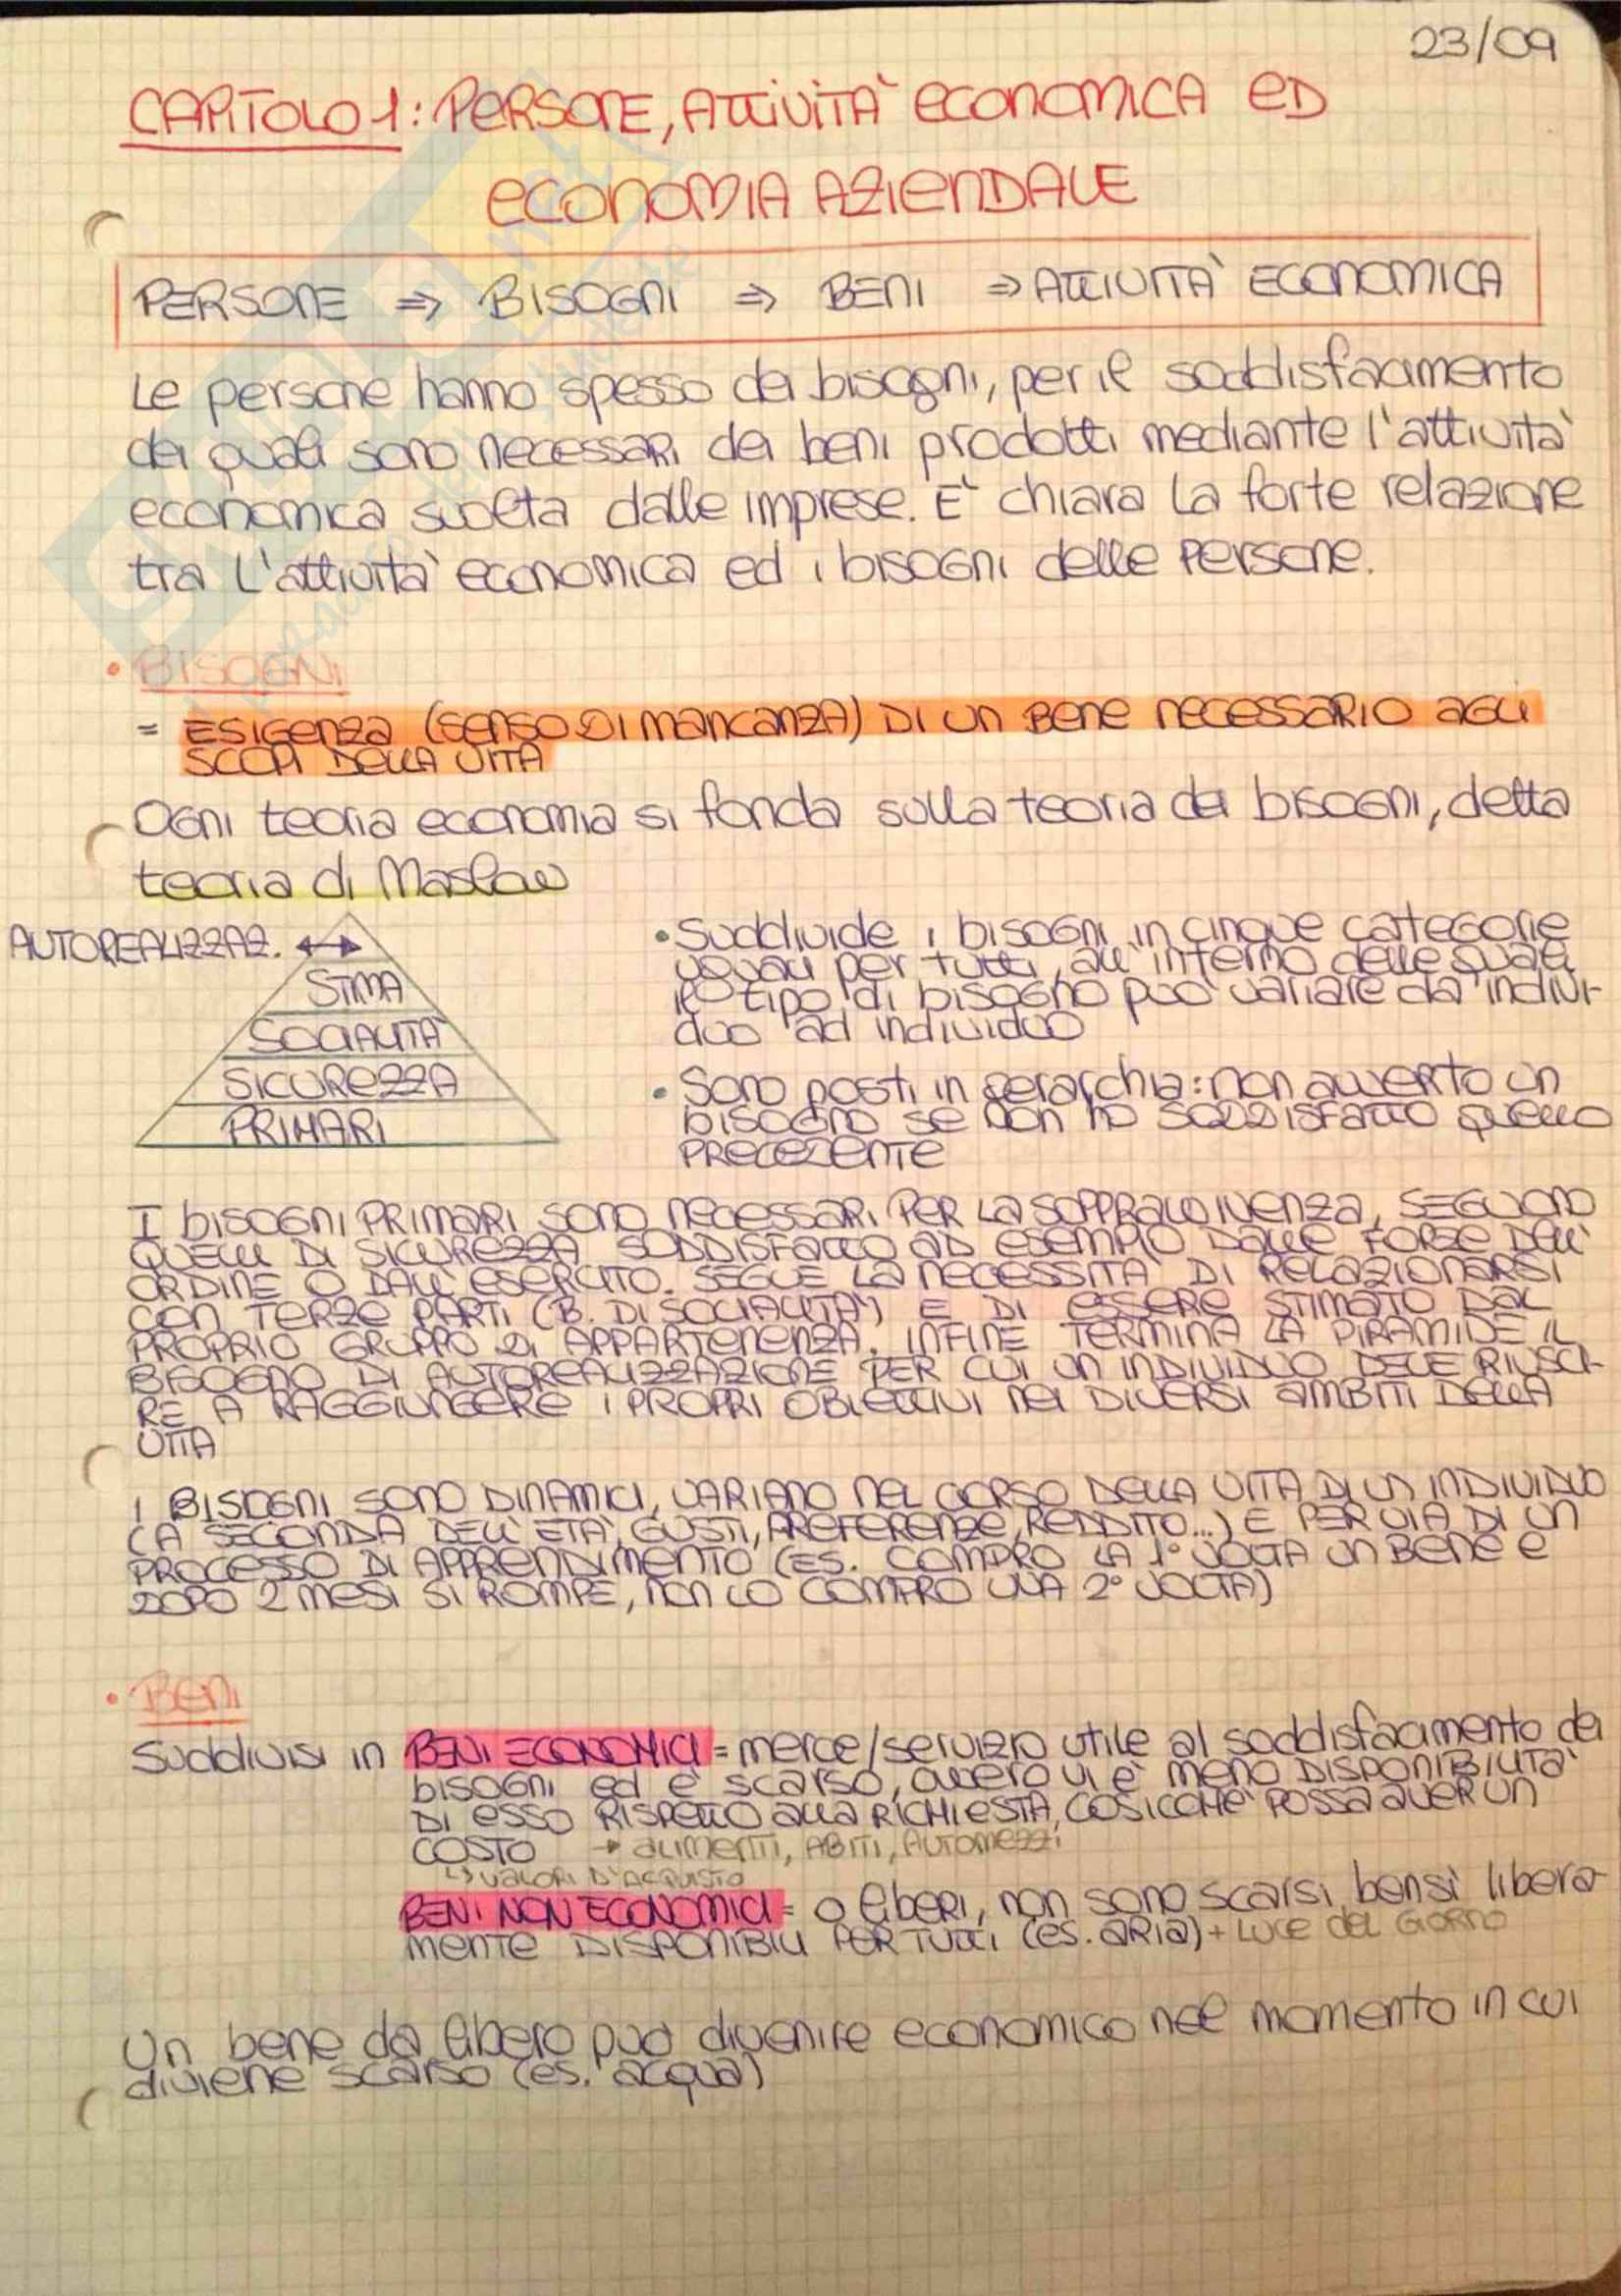 23/09
CAPITOLO 1: PERSONE, ATTIVITÀ ECONOMICA ED
ECONOMIA AZIENDALE
PERSONE ⇒ BISOGNI ⇒ BENI ⇒ ATTIVITÀ ECONOMICA
Le persone hanno spesso dei bisogni, per il soddisfacimento
dei quali sono necessari dei beni prodotti mediante l'attività
economica svolta dalle imprese. È chiara la forte relazione
tra l'attività economica ed i bisogni delle persone.
• BISOGNI
= ESIGENZA (SENSO DI MANCANZA) DI UN BENE NECESSARIO AGLI
SCOPI DELLA VITA
Ogni teoria economia si fonda sulla teoria dei bisogni, detta
teoria di Maslow
AUTOREALIZZAZ. ↔
STIMA
SOCIALITÀ
SICUREZZA
PRIMARI
• Suddivide i bisogni in cinque cattegorie
uguali per tutti, all'interno delle quali
il tipo di bisogno può variare da indivi-
duo ad individuo
• Sono posti in gerarchia: non avverto un
bisogno se non ho SODDISFATTO quello
PRECEDENTE
I BISOGNI PRIMARI SONO NECESSARI PER LA SOPPRAVVIVENZA, SEGUONO
QUELLI DI SICUREZZA SODDISFATTO AD ESEMPIO DALLE FORZE DELL'
ORDINE O DALL'ESERCITO. SEGUE LA NECESSITÀ DI RELAZIONARSI
CON TERZE PARTI (B. DI SOCIALITÀ) E DI ESSERE STIMATO DAL
PROPRIO GRUPPO DI APPARTENENZA. INFINE TERMINA LA PIRAMIDE IL
BISOGNO DI AUTOREALIZZAZIONE PER CUI UN INDIVIDUO DEVE RIUSCI-
RE A RAGGIUNGERE I PROPRI OBIETTIVI NEI DIVERSI AMBITI DELLA
VITA
I BISOGNI SONO DINAMICI, VARIANO NEL CORSO DELLA VITA DI UN INDIVIDUO
(A SECONDA DELL'ETÀ, GUSTI, PREFERENZE, REDDITO...) E PER VIA DI UN
PROCESSO DI APPRENDIMENTO (ES. COMPRO LA 1° VOLTA UN BENE E
DOPO 2 MESI SI ROMPE, NON LO COMPRO UNA 2° VOLTA)
• BENI
Suddivisi in BENI ECONOMICI = merce/servizio utile al soddisfacimento dei
bisogni ed è scarso, ovvero vi è MENO DISPONIBILITÀ
DI ESSO RISPETTO ALLA RICHIESTA, COSICCHÈ POSSA AVER UN
COSTO → ALIMENTI, ABITI, AUTOMEZZI
↳ VALORI D'ACQUISTO
BENI NON ECONOMICI = o liberi, non sono scarsi, bensì libera-
mente DISPONIBILI PER TUTTI (es. ARIA) + LUCE DEL GIORNO
Un bene da libero può divenire economico nel momento in cui
diviene scarso (es. acqua)